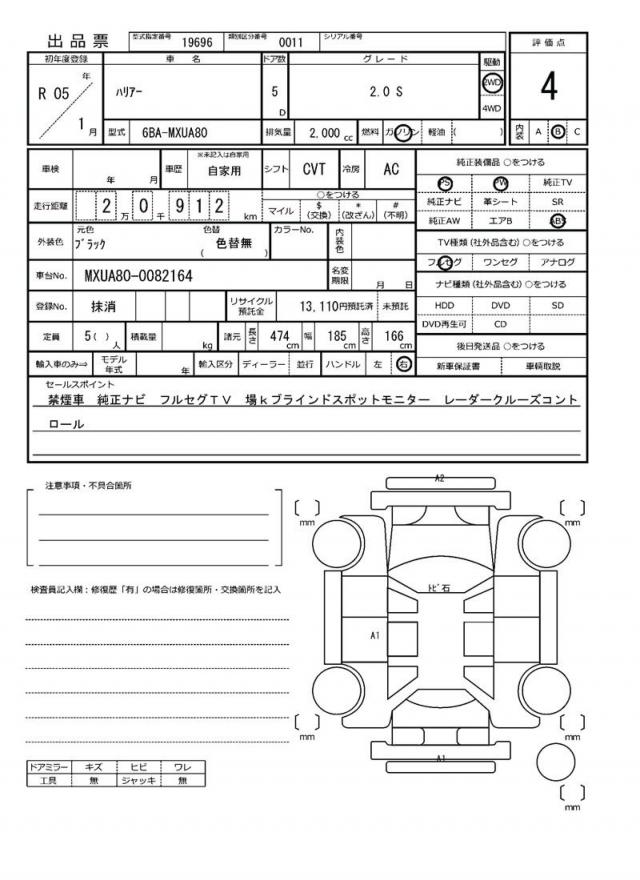 出品票 型式指定番号 19696 類別区分番号 0011 シリアル番号
初年度登録 車 名 ドア数 グレード 駆動 評価点
R 05 年 1 月 ﾊﾘｱｰ 5 D 2.0 S 2WD 4WD 4
型式 6BA-MXUA80 排気量 2,000 cc 燃料 ガソリン 軽油 ( ) 内装 A B C
車検 年 月 車歴 ※未記入は自家用 自家用 シフト CVT 冷房 AC
走行距離 2 万 0 千 9 1 2 km ○をつける マイル $ (交換) * (改ざん) # (不明)
外装色 元色 ﾌﾞﾗｯｸ 色替 ( 色替無 ) カラーNo. 内装色
車台No. MXUA80-0082164 名変期限 月 日
登録No. 抹消 リサイクル預託金 13,110円預託済 未預託
定員 5( ) 人 積載量 kg 諸元 長さ 474 cm 幅 185 cm 高さ 166 cm
輸入車のみ⇒ モデル年式 年 輸入区分 ディーラー 並行 ハンドル 左 右
純正装備品 ○をつける
PS PW 純正TV
純正ナビ 革シート SR
純正AW エアB ABS
TV種類(社外品含む)○をつける
フルセグ ワンセグ アナログ
ナビ種類(社外品含む)○をつける
HDD DVD SD
DVD再生可 CD
後日発送品 ○をつける
新車保証書 車輌取説
セールスポイント
禁煙車 純正ナビ フルセグTV 場kブラインドスポットモニター レーダークルーズコント
ロール
注意事項・不具合箇所
検査員記入欄：修復歴「有」の場合は修復箇所・交換箇所を記入
ドアミラー キズ ヒビ ワレ
工具 無 ジャッキ 無
A2
mm mm
ﾄﾋﾞ石
A1
mm mm
A1
mm